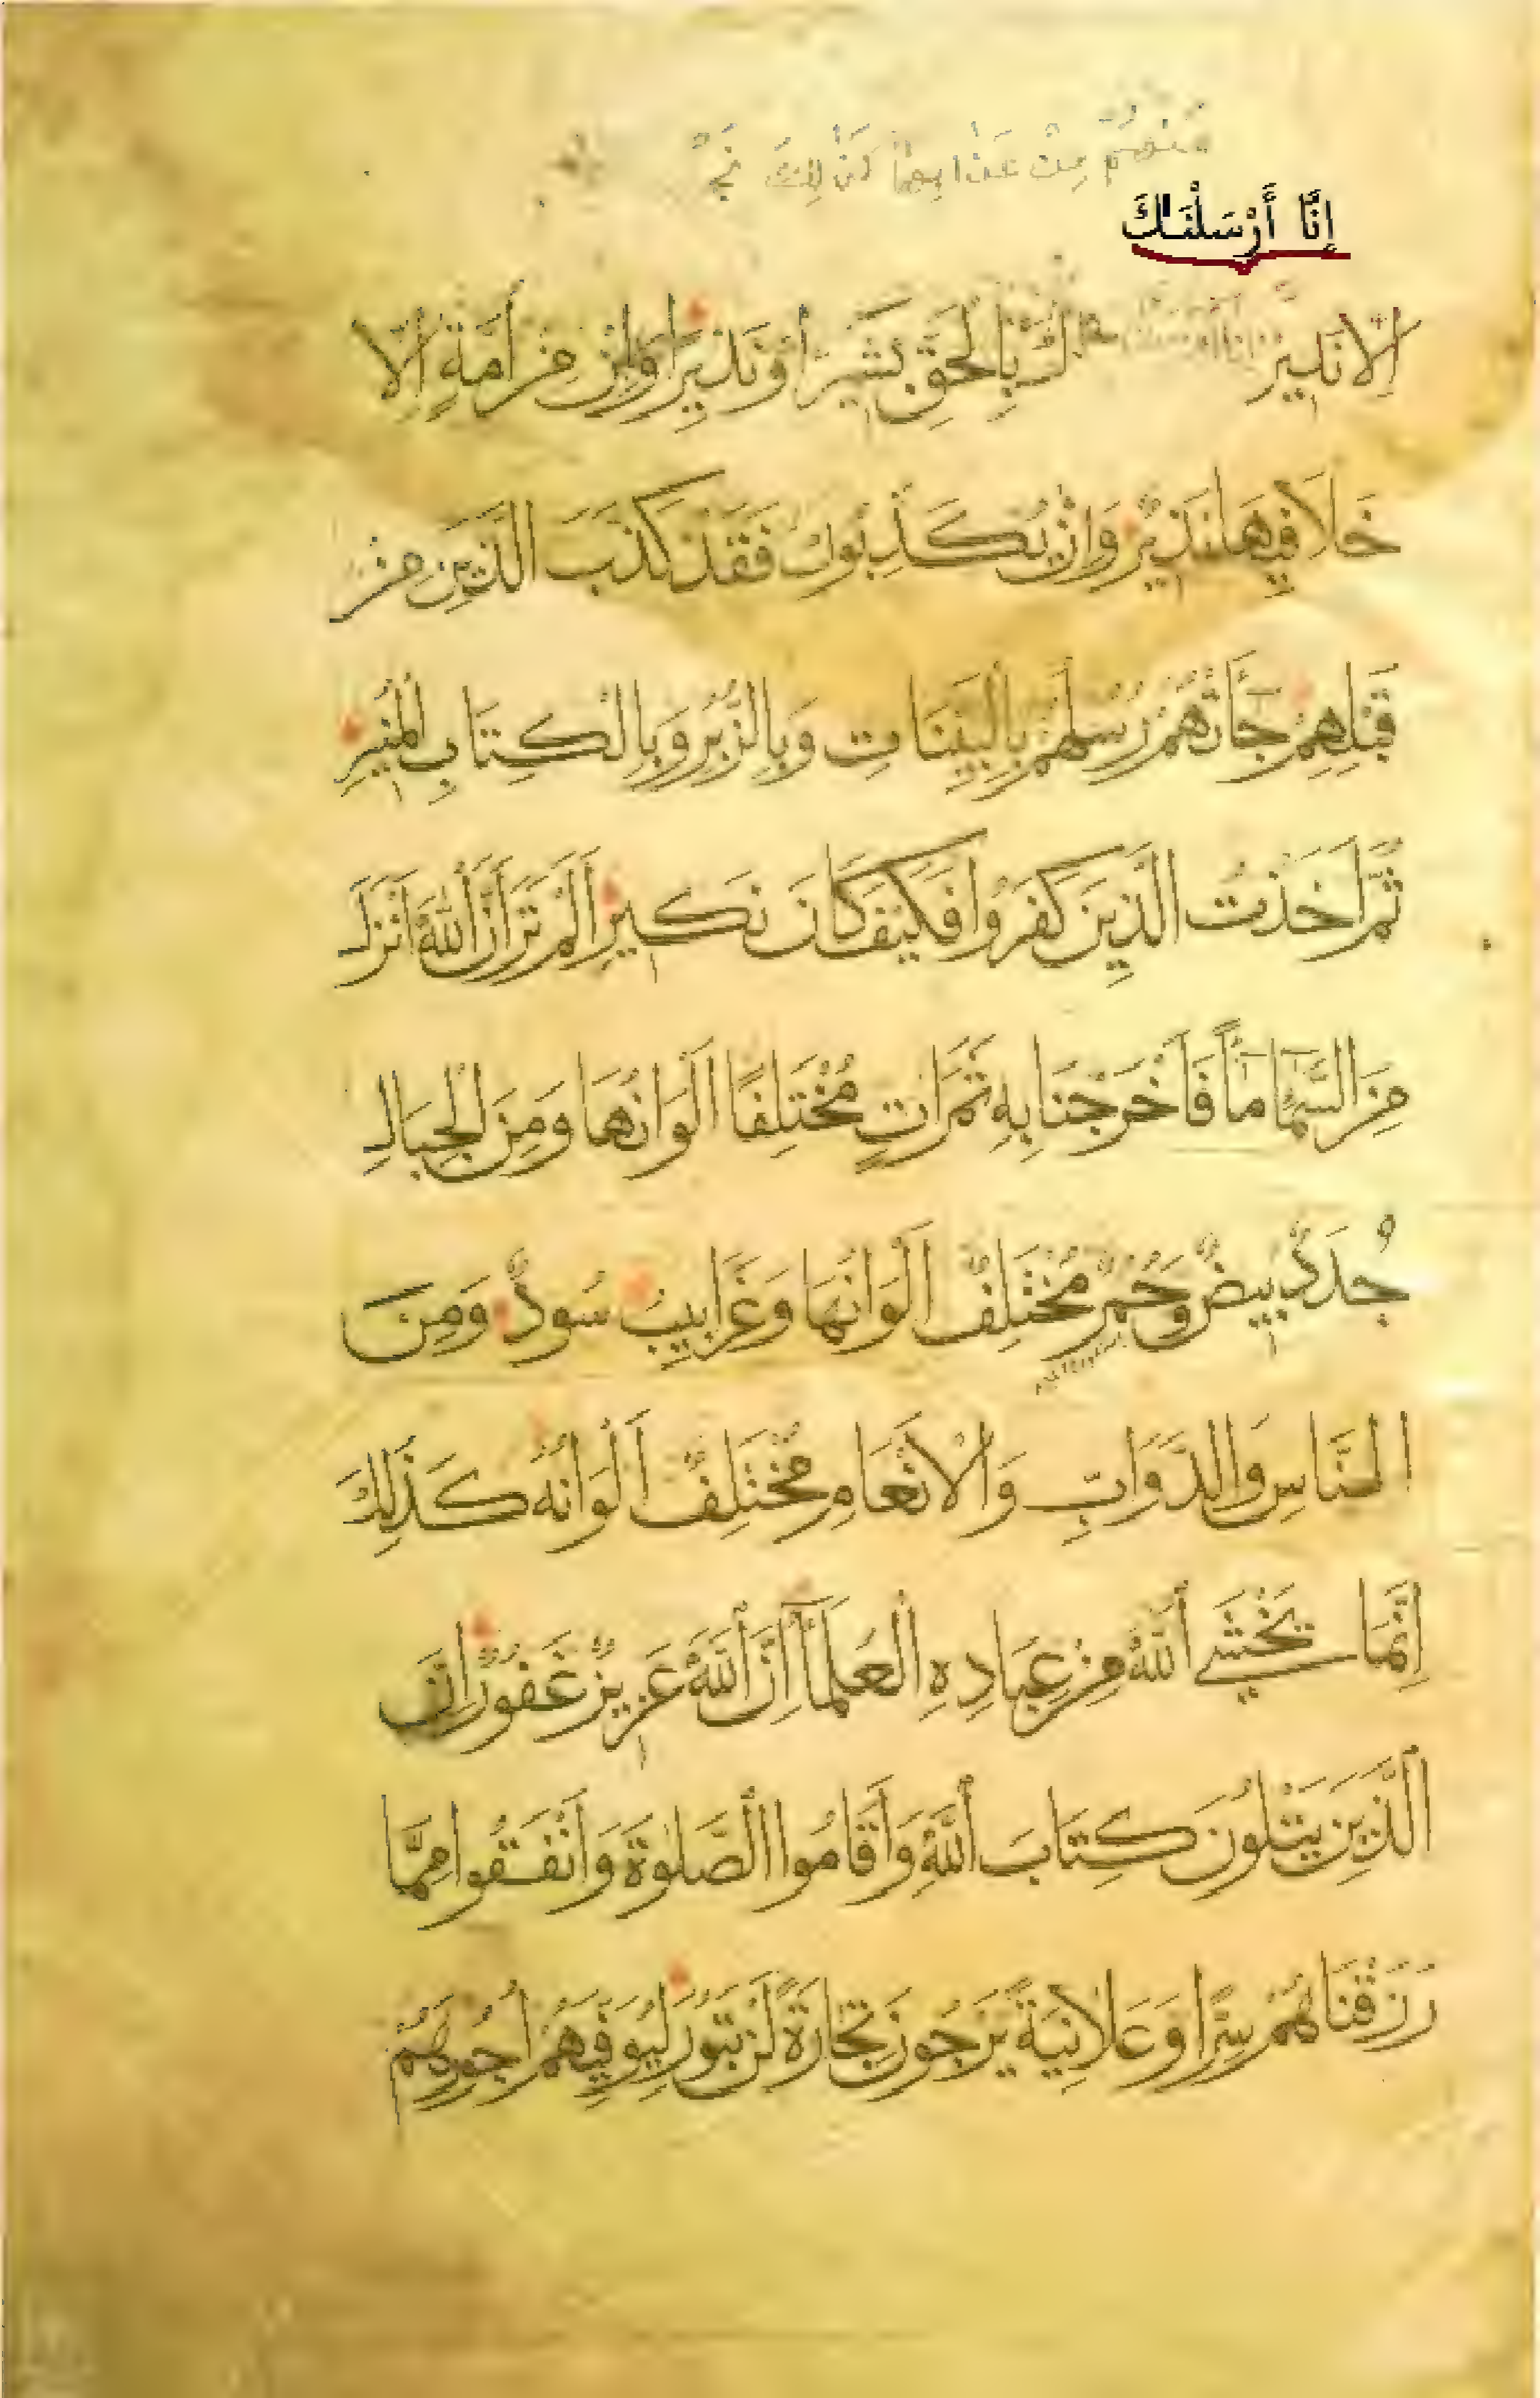 مِنْ عَذَابِهَا كَذَلِكَ نَجْ
إِنَّا أَرْسَلْنَاكَ
اِلَّا نَذِيرٌ كَ بِالْحَقِّ بَشِيرًا وَنَذِيرًا وَاِنْ مِنْ اُمَّةٍ اِلَّا
خَلَا فِيهَا نَذِيرٌ وَاِنْ يُكَذِّبُوكَ فَقَدْ كَذَّبَ الَّذِينَ مِنْ
قَبْلِهِمْ جَآءَتْهُمْ رُسُلُهُمْ بِالْبَيِّنَاتِ وَبِالزُّبُرِ وَبِالْكِتَابِ الْمُنِيرِ
ثُمَّ اَخَذْتُ الَّذِينَ كَفَرُوا فَكَيْفَ كَانَ نَكِيرِ اَلَمْ تَرَ اَنَّ اللّٰهَ اَنْزَلَ
مِنَ السَّمَآءِ مَآءً فَاَخْرَجْنَا بِهِ ثَمَرَاتٍ مُخْتَلِفًا اَلْوَانُهَا وَمِنَ الْجِبَالِ
جُدَدٌ بِيضٌ وَحُمْرٌ مُخْتَلِفٌ اَلْوَانُهَا وَغَرَابِيبُ سُودٌ وَمِنَ
النَّاسِ وَالدَّوَابِّ وَالْاَنْعَامِ مُخْتَلِفٌ اَلْوَانُهُ كَذَلِكَ
اِنَّمَا يَخْشَى اللّٰهَ مِنْ عِبَادِهِ الْعُلَمَآءُ اِنَّ اللّٰهَ عَزِيزٌ غَفُورٌ اِنَّ
الَّذِينَ يَتْلُونَ كِتَابَ اللّٰهِ وَاَقَامُوا الصَّلٰوةَ وَاَنْفَقُوا مِمَّا
رَزَقْنَاهُمْ سِرًّا وَعَلَانِيَةً يَرْجُونَ تِجَارَةً لَنْ تَبُورَ لِيُوَفِّيَهُمْ اُجُورَهُمْ